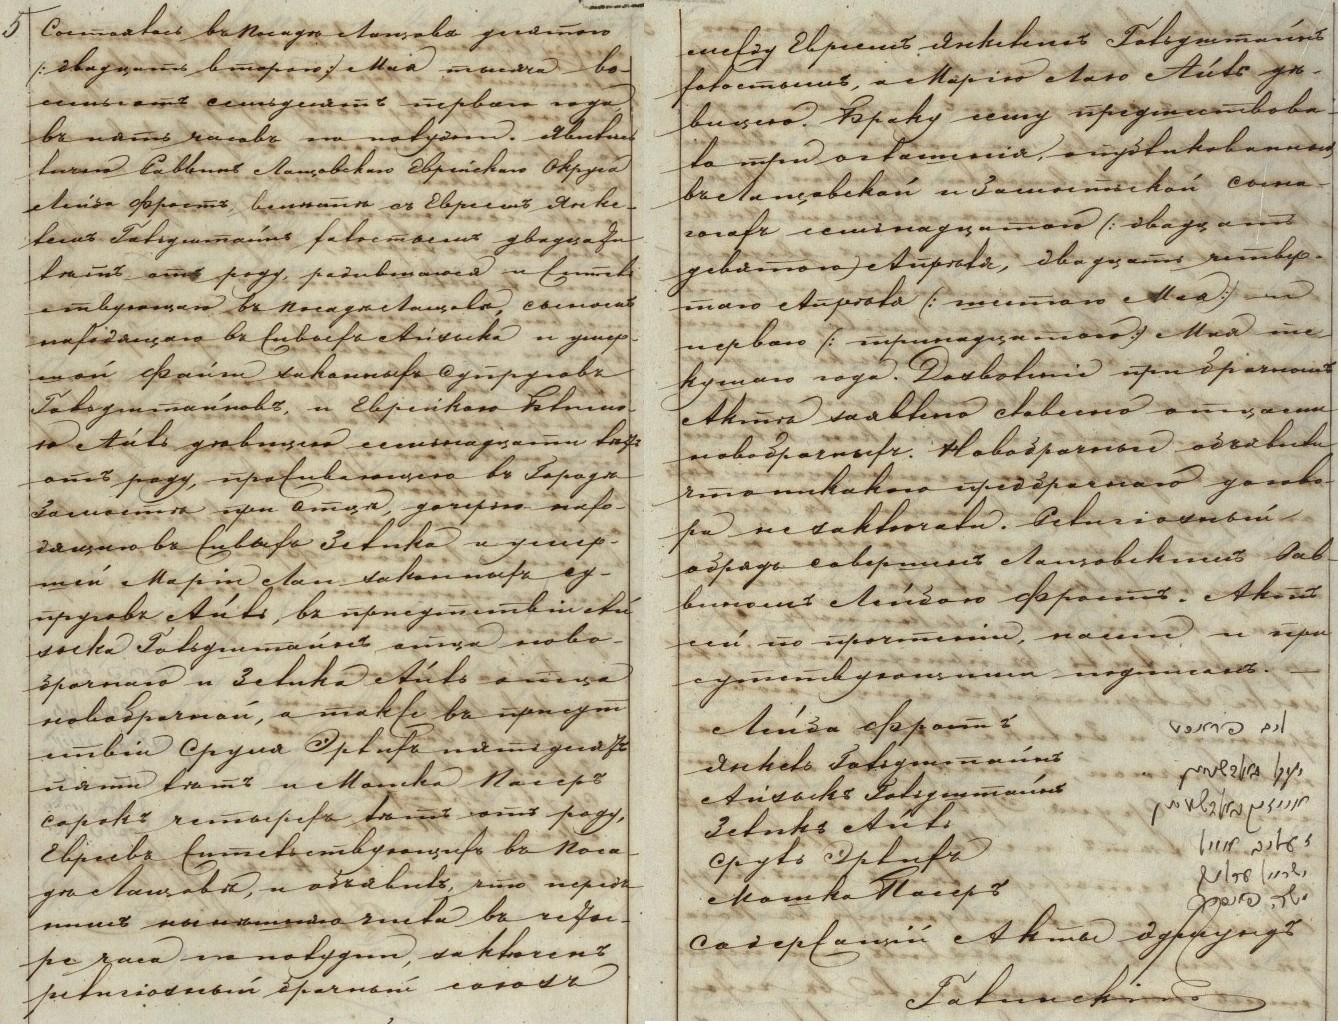 5
Состоялось въ посадѣ Лащовѣ десятого
(: двадцать второго :) Мая тысяча во-
семьсотъ семьдесятъ перваго года,
въ пять часовъ по полудни. Явился
лично Раввинъ Лащовскаго Еврейскаго Округа
Лейза Фростъ, вмѣстѣ съ Евреемъ Янке-
лемъ Гольдштайнъ холостымъ двадцати
лѣтъ отъ роду, родившагося и жительствующаго
въ посадѣ Лащовѣ, сыномъ
находящаго въ живыхъ Айзыка и умер-
шой Файги законныхъ супруговъ
Гольдштайновъ, и Еврейкою
Айль дѣвицею семнадцати лѣтъ
отъ роду, проживающею въ Городѣ
Замостьѣ при отцѣ, дочерью нахо-
дящаго въ живыхъ Зелика и умер-
шей Маріи Лаи законныхъ су-
пруговъ Айль, въ присутствіи Ай
зыка Гольдштайнъ отца ново-
брачнаго и Зелика Айль отца
новобрачной, а также въ присут
ствіи Сруля Эрлихъ пятидесяти
пяти лѣтъ и Мошка Пасеръ
сорокъ четырехъ лѣтъ отъ роду,
Евреевъ жительствующихъ въ поса-
дѣ Лащовѣ, и объявилъ, что передъ
нимъ числа въ четы-
ре часа по полудни, заключенъ
религіозный брачный союзъ
между Евреемъ Янкелемъ Гольдштайнъ
холостымъ, а Маріею Лаею Айль дѣ-
вицею. Браку сему предшествова-
ло три оглашенія, опубликованныя
въ Лащовской и Замостьской сина-
гогахъ семнадцатого (: двадцать
девятого) Апрѣля, двадцать четвер-
таго Апрѣля (: шестого Мая :) и
перваго (: тринадцатого :) Мая те
кущаго года. Дозволеніе при брачномъ
Актѣ заявлено словесно отцами
новобрачныхъ. Новобрачные объявили
что никакого предбрачнаго догово-
ра не заключали. Религіозный
обрядъ совершенъ Лащовскимъ Рав-
виномъ Лейзою Фростъ. Актъ
сей по прочтеніи, нами и при
сутствующими подписанъ. —
Лейза Фростъ
Янкель Гольдштайнъ
Айзыкъ Гольдштайнъ
Зеликъ Айль
Сруль Эрлихъ
Мошка Пасеръ
Содержащій Акты